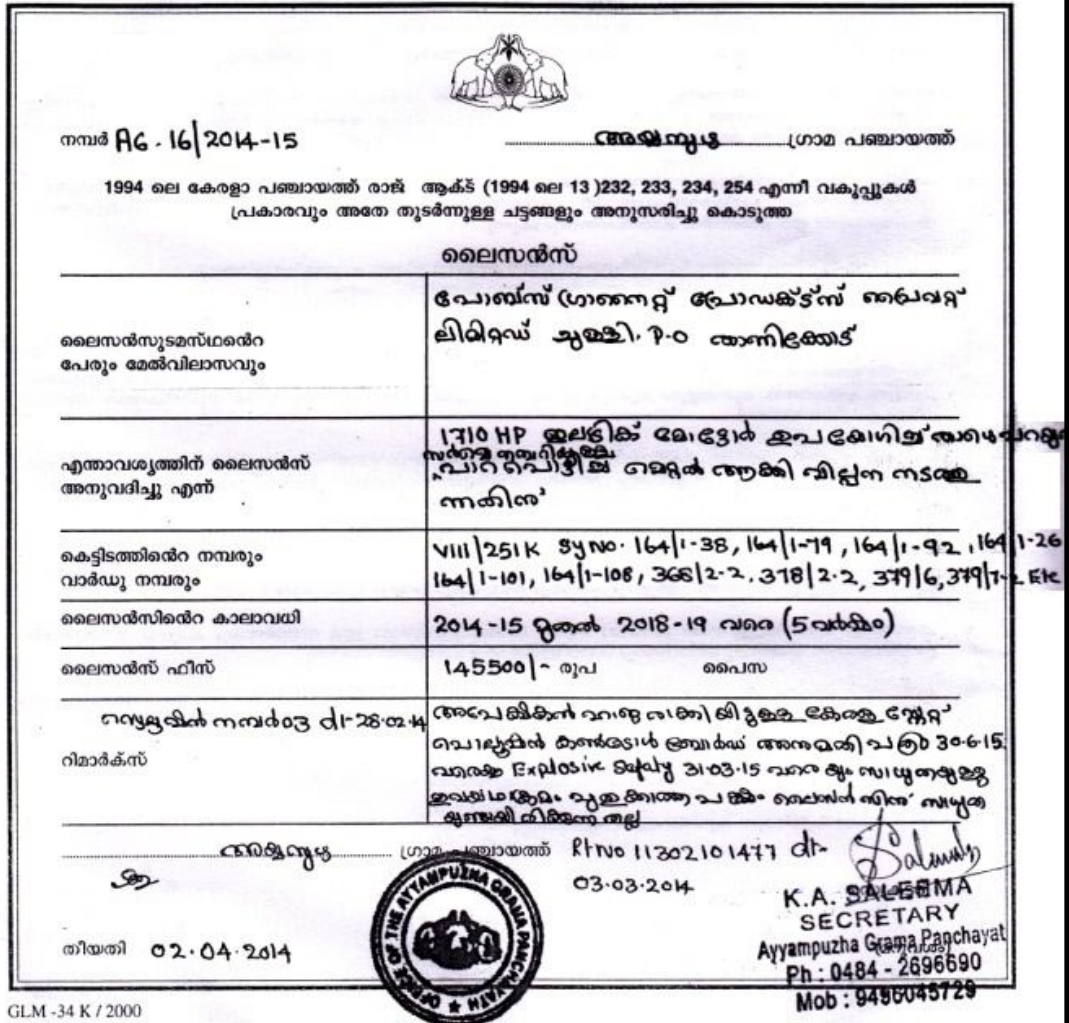 നമ്പർ A6.16/2014-15 അയ്യമ്പുഴ ഗ്രാമ പഞ്ചായത്ത്
1994 ലെ കേരളാ പഞ്ചായത്ത് രാജ് ആക്ട് (1994 ലെ 13 )232, 233, 234, 254 എന്നീ വകുപ്പുകൾ
പ്രകാരവും അതേ തുടർന്നുള്ള ചട്ടങ്ങളും അനുസരിച്ചു കൊടുത്ത
ലൈസൻസ്
ലൈസൻസുടമസ്ഥന്റെ
പേരും മേൽവിലാസവും
പോബ്സ് ഗ്രാനൈറ്റ് പ്രോഡക്ട്സ് പ്രൈവറ്റ്
ലിമിറ്റഡ് ചുള്ളി. P.O താണിക്കോട്
എന്താവശ്യത്തിന് ലൈസൻസ്
അനുവദിച്ചു എന്ന്
1710 HP ഇലട്രിക് മോട്ടോർ ഉപയോഗിച്ച് താഴെപറയുന്ന
സർവ്വെ നമ്പറിലുള്ള
പാറ പൊട്ടിച്ച് മെറ്റൽ ആക്കി വില്പന നടത്തു
ന്നതിന്
കെട്ടിടത്തിന്റെ നമ്പരും
വാർഡു നമ്പരും
VIII/251K Sy No. 164/1-38, 164/1-79, 164/1-92, 164/1-26
164/1-101, 164/1-108, 368/2-2, 378/2-2, 379/6, 379/7-2 Etc
ലൈസൻസിന്റെ കാലാവധി 2014-15 മുതൽ 2018-19 വരെ (5 വർഷം)
ലൈസൻസ് ഫീസ് 145500/- രൂപ പൈസ
നമ്പർ 03 dt-28.02.14
റിമാർക്സ്
അപേക്ഷകൻ ഹാജരാക്കിയിട്ടുള്ള കേരള സ്റ്റേറ്റ്
പൊല്യൂഷൻ കൺട്രോൾ ബോർഡ് അനുമതി പത്രം 30.6.15
വരെയും Explosive Safety 31.03.15 വരെയും സാധുതയുള്ളു
ഇവ യഥാക്രമം പുതുക്കാത്ത പക്ഷം ലൈസൻസിന് സാധുത
ഉണ്ടായിരിക്കുന്നതല്ല
അയ്യമ്പുഴ ഗ്രാമ പഞ്ചായത്ത് Rt No 11302101477 dt-
03.03.2014
K.A. SALEEMA
SECRETARY
Ayyampuzha Grama Panchayat
Ph : 0484 - 2696690
Mob : 9496045729
OFFICE OF THE AYYAMPUZHA GRAMA PANCHAYATH
തിയതി 02.04.2014
GLM -34 K / 2000